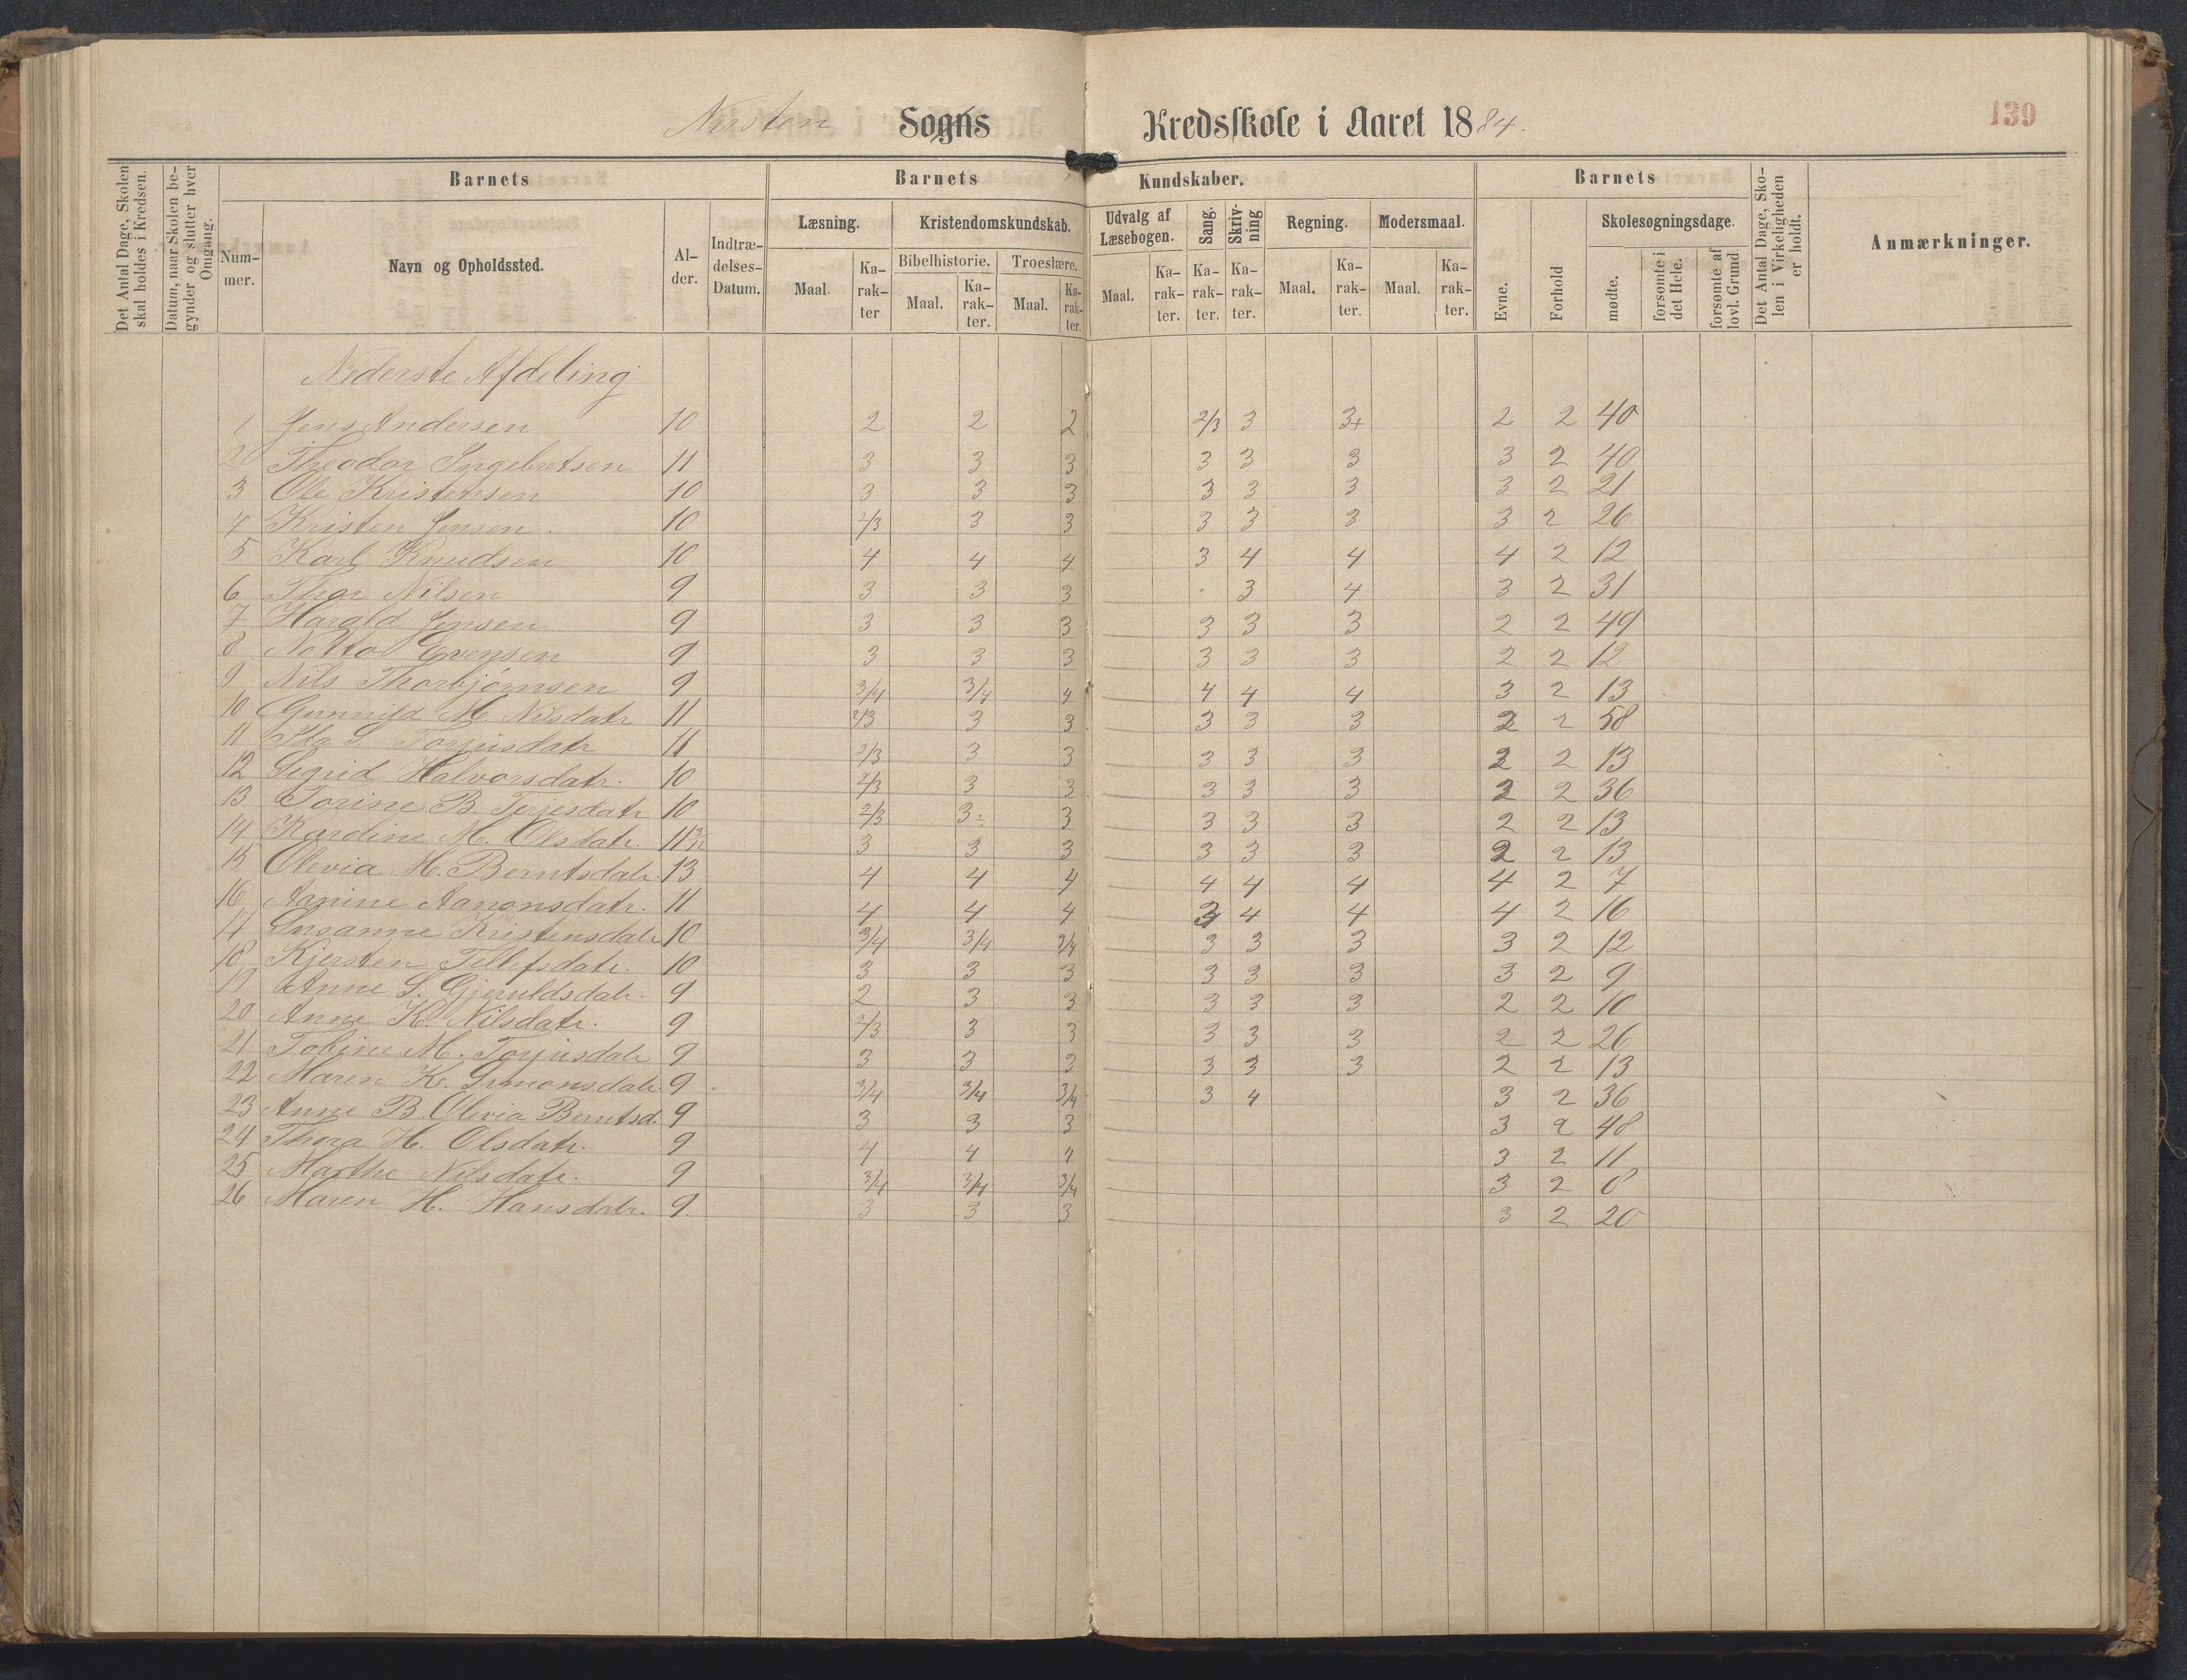 Nersten Sogns Kredsskole i Aaret 1884.
139
Det Antal Dage, Skolen skal holdes i Kredsen.
Datum, naar Skolen begynder og slutter hver Omgang.
Barnets
Nummer.
Navn og Opholdssted.
Alder.
Indtrædelses-Datum.
Barnets Kundskaber.
Læsning.
Maal.
Karakter
Kristendomskundskab.
Bibelhistorie.
Maal.
Karakter.
Troeslære.
Maal.
Karakter.
Udvalg af Læsebogen.
Maal.
Karakter.
Sang.
Karakter.
Skrivning
Karakter.
Regning.
Maal.
Karakter.
Modersmaal.
Maal.
Karakter.
Barnets
Evne.
Forhold
Skolesøgningsdage.
mødte.
forsømte i det Hele.
forsømte af lovl. Grund
Det Antal Dage, Skolen i Virkeligheden er holdt.
Anmærkninger.
Nederste Afdeling
1 Jens Andersen 10 2 2 2 2/3 3 3+ 2 2 40
2 Theodor Ingebretsen 11 3 3 3 3 3 3 3 2 40
3 Ole Kristensen 10 3 3 3 3 3 3 3 2 21
4 Kristen Jensen. 10 2/3 3 3 3 3 3 3 2 26
5 Karl Knudsen 10 4 4 4 3 4 4 4 2 12
6 Thor Nilsen 9 3 3 3 3 4 3 2 31
7 Harald Jensen 9 3 3 3 3 3 3 2 2 49
8 Notto Evensen 9 3 3 3 3 3 3 2 2 12
9 Nils Thorbjørnsen 9 3/4 3/4 4 4 4 4 3 2 13
10 Gunnild M. Nilsdatr 11 2/3 3 3 3 3 3 2 2 58
11 S. Torjusdatr 11 2/3 3 3 3 3 3 2 2 13
12 Sigrid Halvorsdatr. 10 2/3 3 3 3 3 3 2 2 36
13 Torine B. Terjesdatr 10 2/3 3÷ 3 3 3 3 2 2 13
14 Karoline M. Olsdatr. 11 3 3 3 3 3 3 2 2 13
15 Olevia M. Berntsdatr. 13 4 4 4 4 4 4 4 2 7
16 Aanine Aanonsdatr. 11 4 4 4 3 4 4 4 2 16
17 Susanne Kristensdatr 10 3/4 3/4 3/4 3 3 3 3 2 12
18 Kjersten Tellefsdatr. 10 3 3 3 3 3 3 3 2 9
19 Anne S. Gjeruldsdatr. 9 2 3 3 3 3 3 2 2 10
20 Anne K. Nilsdatr. 9 2/3 3 3 3 3 3 2 2 26
21 Tobine M. Torjusdatr 9 3 3 3 3 3 3 2 2 13
22 Maren K. Simonsdatr. 9 3/4 3/4 3/4 3 4 3 2 36
23 Anne B. Olevia Berntsd. 9 3 3 3 3 2 48
24 Thora H. Olsdatr. 9 4 4 4 3 2 11
25 Marthe Nilsdatr. 9 3/4 3/4 3/4 3 2 8
26 Maren H. Hansdatr. 9 3 3 3 3 2 20